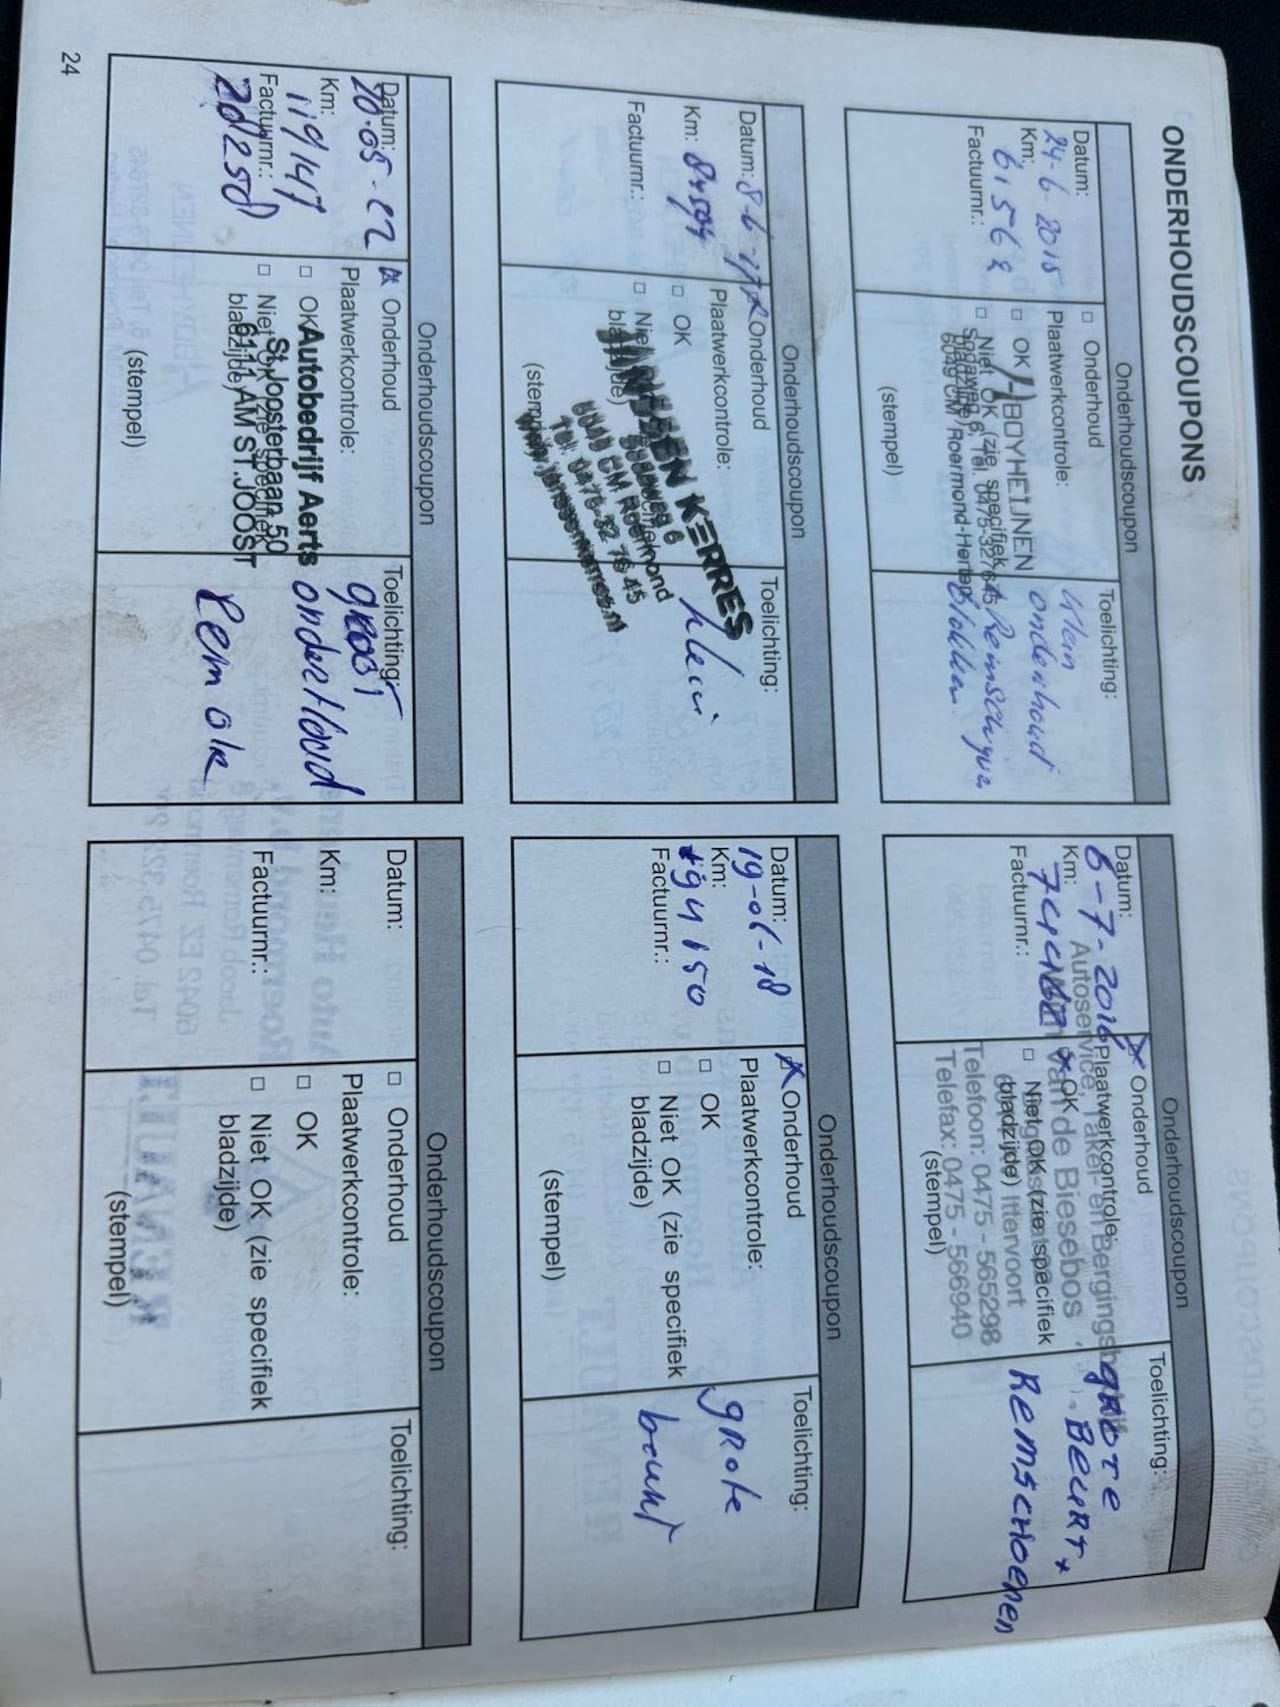 ONDERHOUDSCOUPONS
Onderhoudscoupon
Datum:
24-6-2015
Km:
6156
Factuurnr.:
□ Onderhoud
Plaatwerkcontrole:
□ OK
□ Niet OK (zie specifiek
bladzijde)
BOYHEIJNEN
Tel. 0475-327645
6049 CM Roermond-Herten
(stempel)
Toelichting:
Klein
onderhoud
Remschyven
Blokken
Onderhoudscoupon
Datum:
6-7-2016
Km:
Factuurnr.:
Onderhoud
Plaatwerkcontrole:
OK
□ Niet OK (zie specifiek
bladzijde)
Autoservice, Taken- en Bergingsbedrijf
van de Biesebos
Ittervoort
Telefoon: 0475 - 565298
Telefax: 0475 - 566940
(stempel)
Toelichting:
GROTE
BEURT +
REMSCHOENEN
Onderhoudscoupon
Datum: 8-6-17
Km:
Factuurnr.:
Onderhoud
Plaatwerkcontrole:
□ OK
□ Niet
bladzijde)
JANSSEN KERRES
6049 CM Roermond
Tel. 0475-32 76 45
(stempel)
Toelichting:
klein
Onderhoudscoupon
Datum:
19-06-18
Km:
94150
Factuurnr.:
Onderhoud
Plaatwerkcontrole:
□ OK
□ Niet OK (zie specifiek
bladzijde)
(stempel)
Toelichting:
grote
beurt
Onderhoudscoupon
Datum:
20-05-22
Km:
119147
Factuurnr.:
Onderhoud
Plaatwerkcontrole:
□ OK
□ Niet OK (zie specifiek
bladzijde)
Autobedrijf Aerts
St. Joosterbaan 50
6111 AM ST.JOOST
(stempel)
Toelichting:
groot
onderhoud
Rem olie
Onderhoudscoupon
Datum:
Km:
Factuurnr.:
□ Onderhoud
Plaatwerkcontrole:
□ OK
□ Niet OK (zie specifiek
bladzijde)
(stempel)
Toelichting:
24